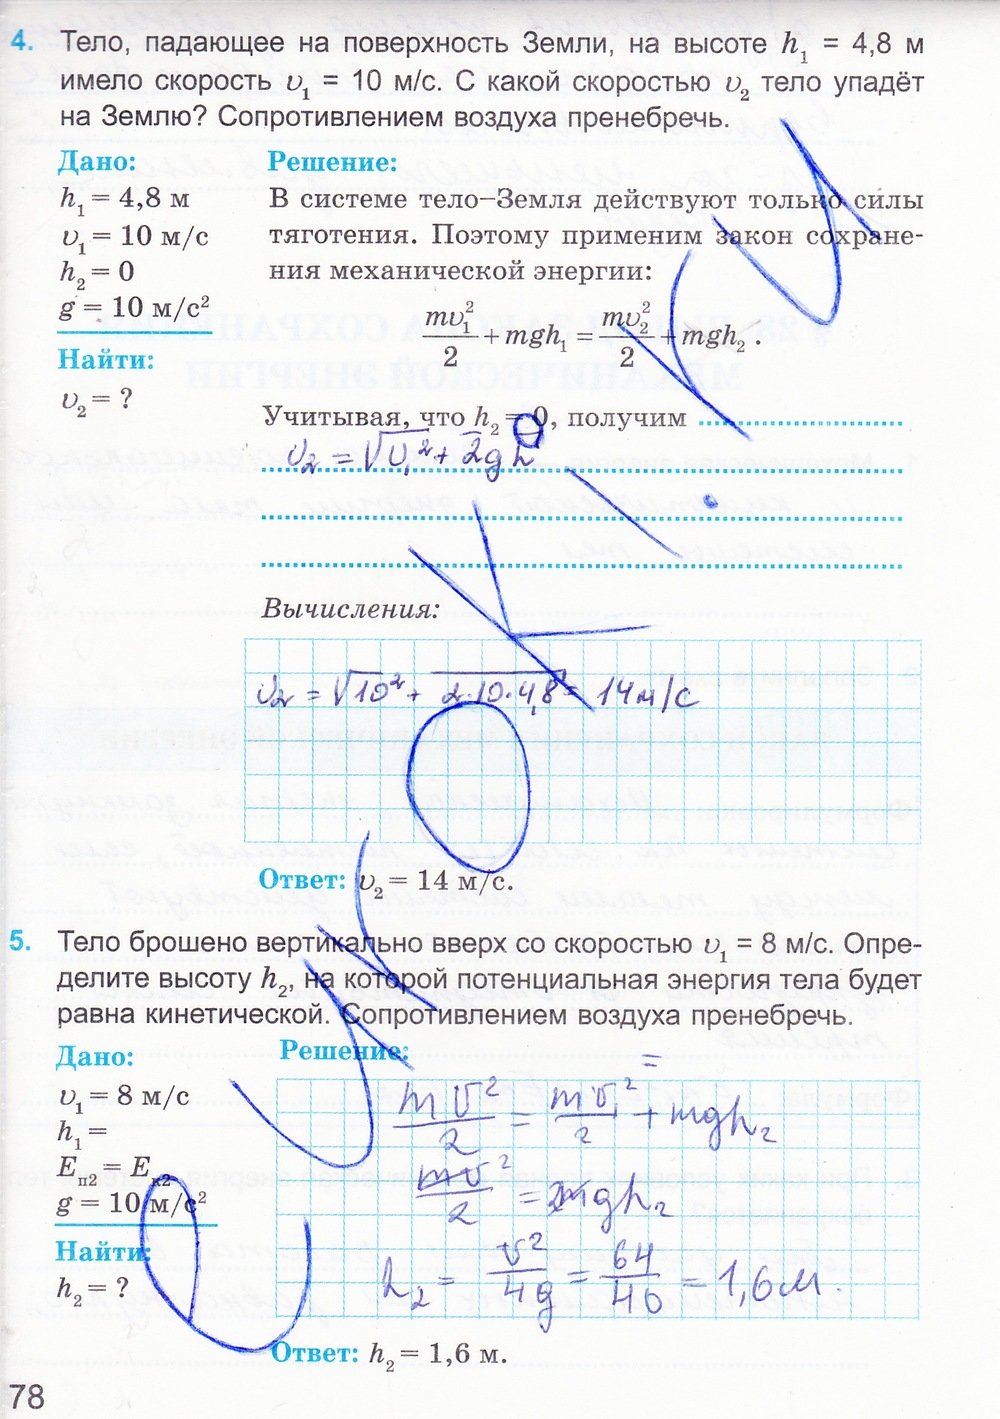 4. Тело, падающее на поверхность Земли, на высоте h₁ = 4,8 м
имело скорость υ₁ = 10 м/с. С какой скоростью υ₂ тело упадёт
на Землю? Сопротивлением воздуха пренебречь.
Дано:
h₁ = 4,8 м
υ₁ = 10 м/с
h₂ = 0
g = 10 м/с²
Найти:
υ₂ = ?
Решение:
В системе тело–Земля действуют только силы
тяготения. Поэтому применим закон сохране-
ния механической энергии:
mυ₁²/2 + mgh₁ = mυ₂²/2 + mgh₂ .
Учитывая, что h₂ = 0, получим
υ₂ = √(υ₁² + 2gh)
Вычисления:
υ₂ = √(10² + 2·10·4,8) = 14 м/с
Ответ: υ₂ = 14 м/с.
5. Тело брошено вертикально вверх со скоростью υ₁ = 8 м/с. Опре-
делите высоту h₂, на которой потенциальная энергия тела будет
равна кинетической. Сопротивлением воздуха пренебречь.
Дано:
υ₁ = 8 м/с
h₁ =
Eп2 = Eк2
g = 10 м/с²
Найти:
h₂ = ?
Решение:
mυ²/2 = mυ₁²/2 + mgh₂
mυ²/2 = 2mgh₂
h₂ = υ²/4g = 64/40 = 1,6 м.
Ответ: h₂ = 1,6 м.
78